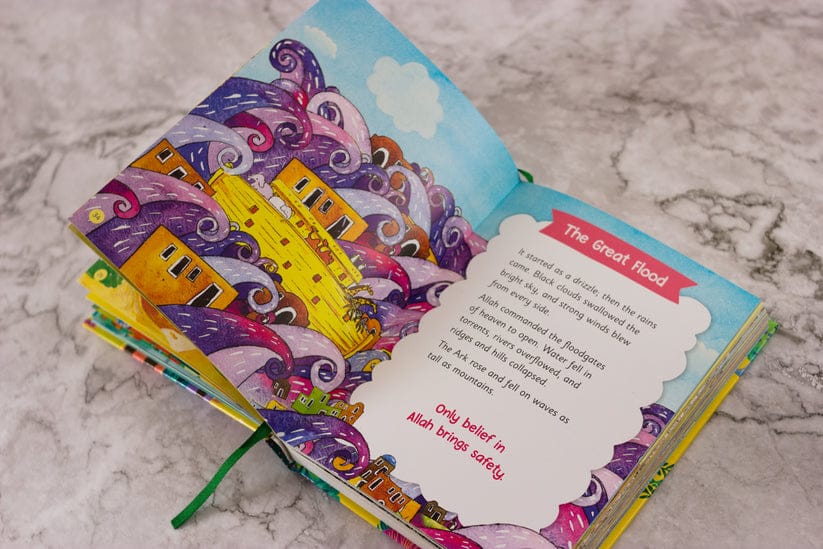 34
The Great Flood
It started as a drizzle; then the rains
came. Black clouds swallowed the
bright sky, and strong winds blew
from every side.
Allah commanded the floodgates
of heaven to open. Water fell in
torrents, rivers overflowed, and
ridges and hills collapsed.
The Ark rose and fell on waves as
tall as mountains.
Only belief in
Allah brings safety.